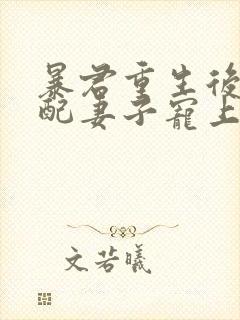 暴君重生後
配妻子寵上
文若曦